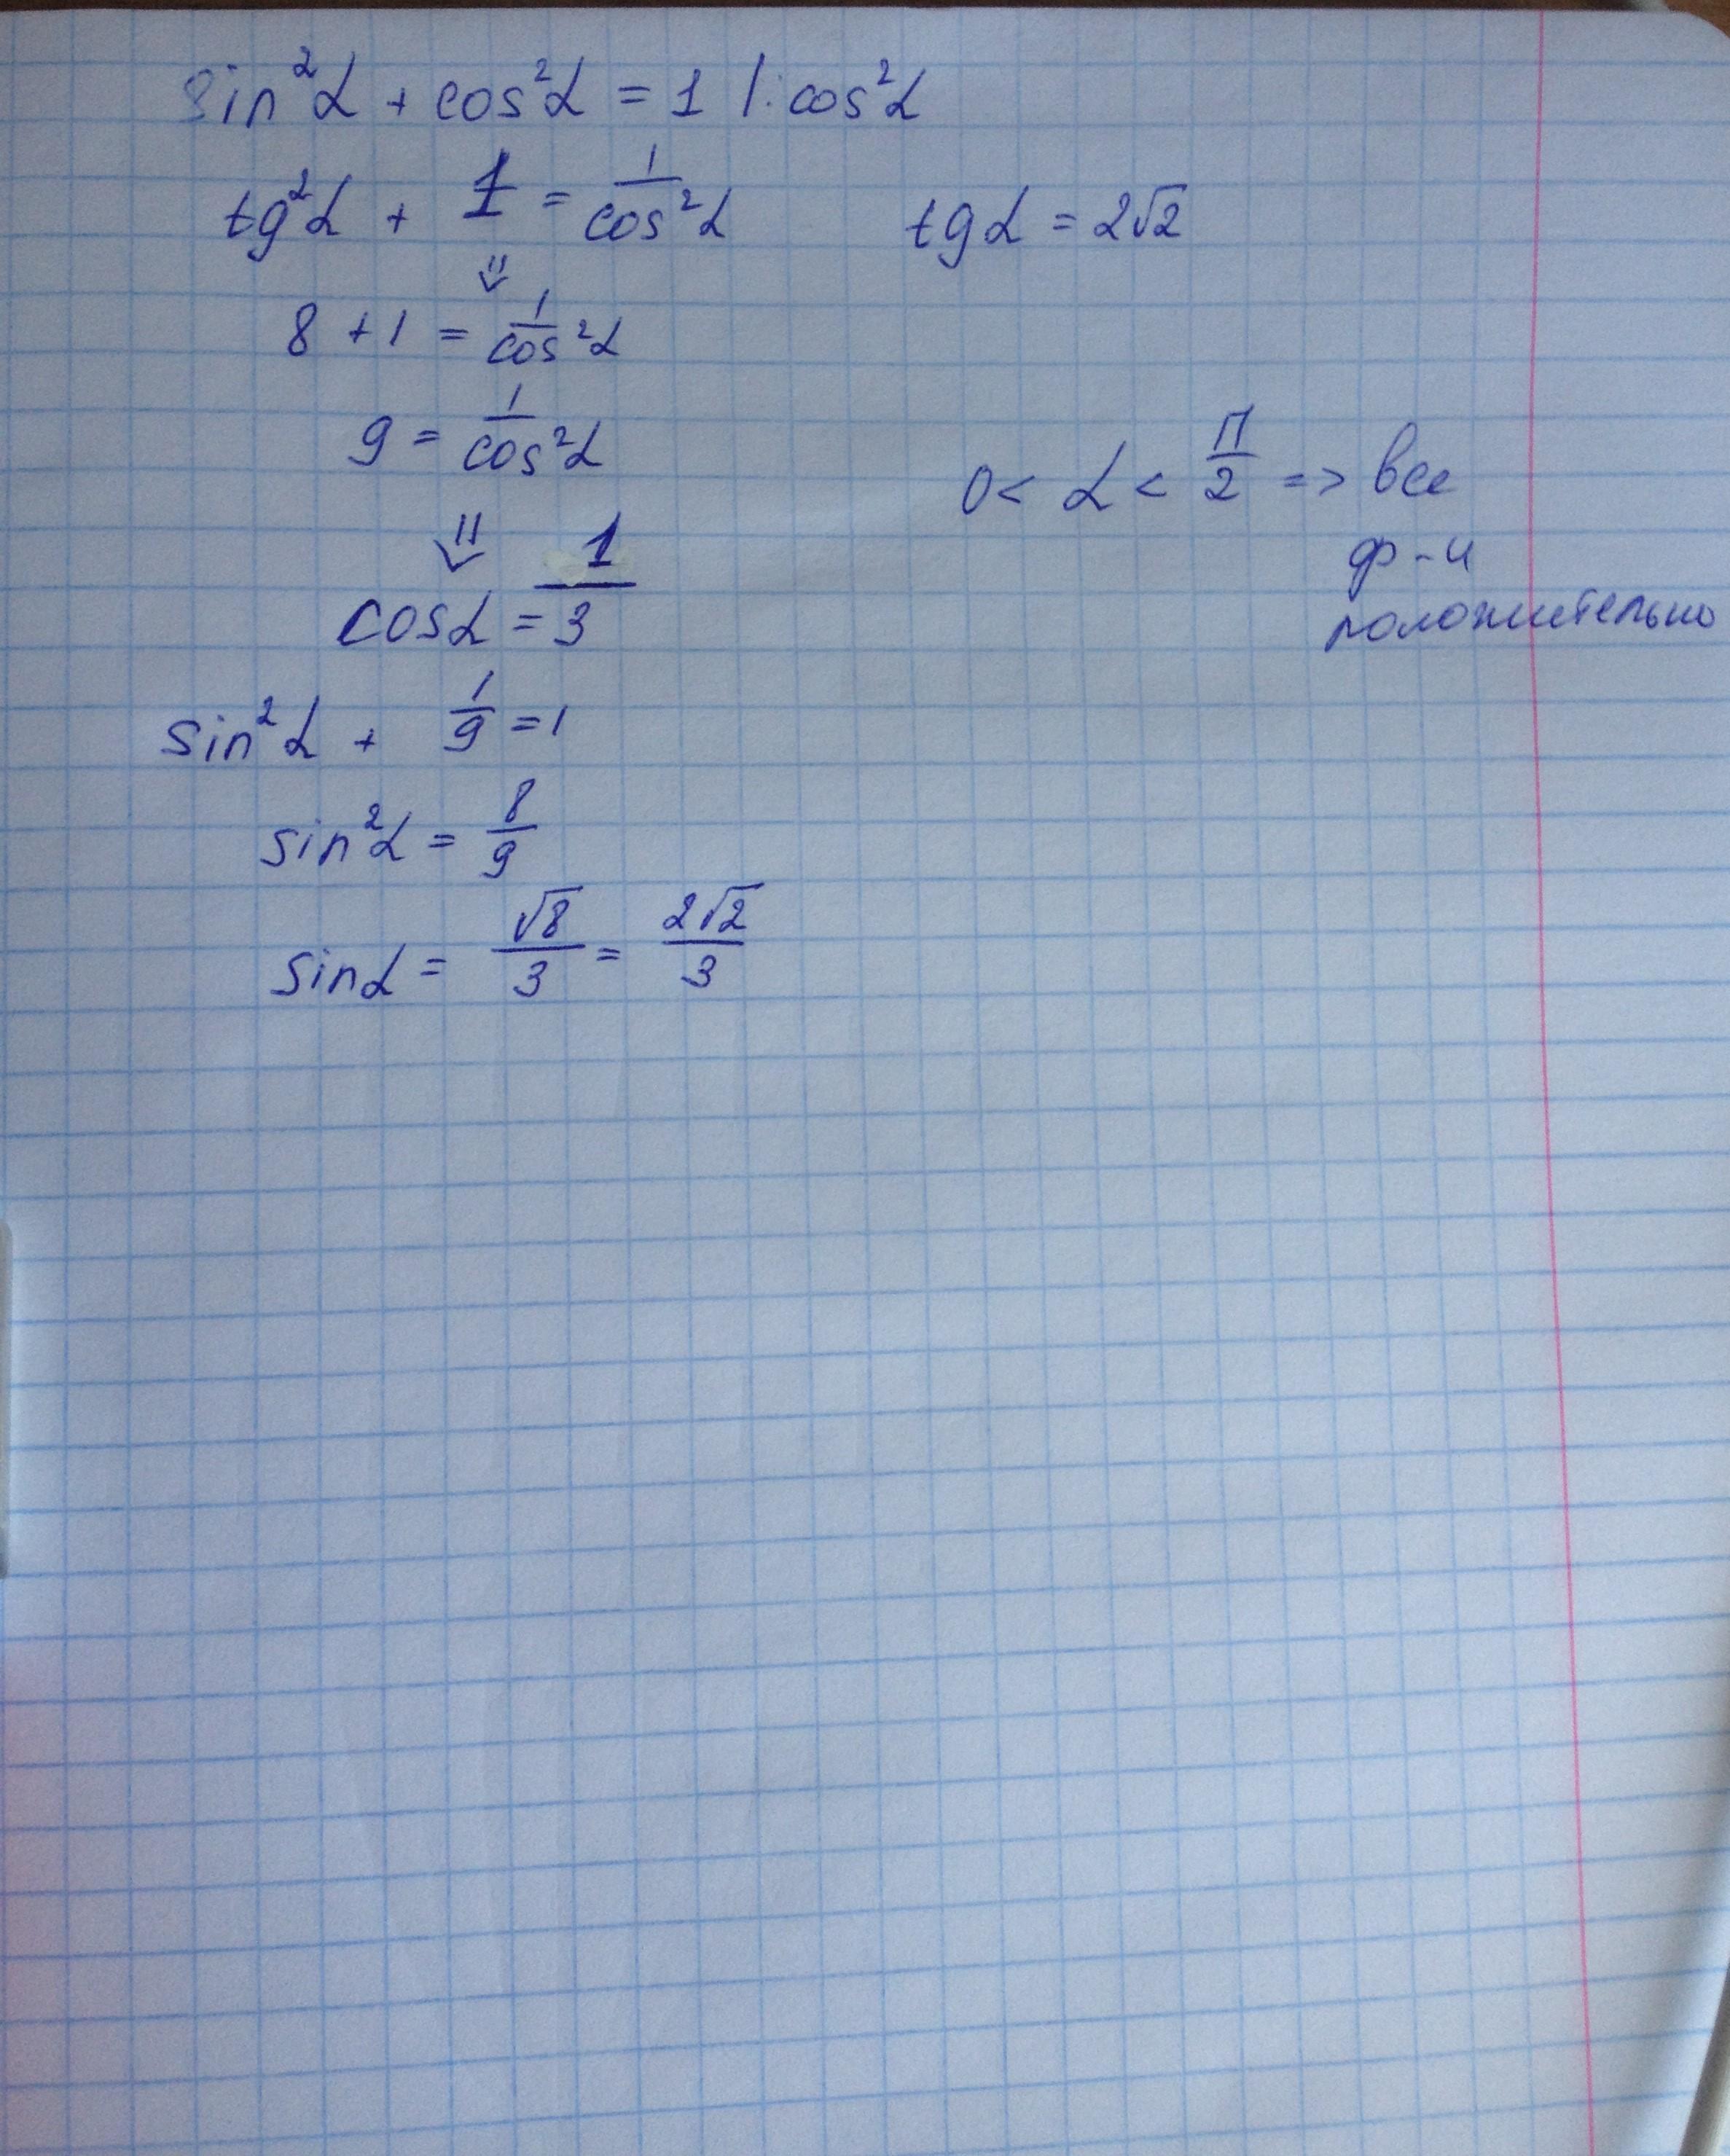 sin²α + cos²α = 1 |: cos²α
tg²α + 1 = 1/cos²α
tgα = 2√2
⇓
8 + 1 = 1/cos²α
9 = 1/cos²α
0 < α < π/2 => все
ф-и
положительно
⇓
cosα = 1/3
sin²α + 1/9 = 1
sin²α = 8/9
sinα = √8/3 = 2√2/3